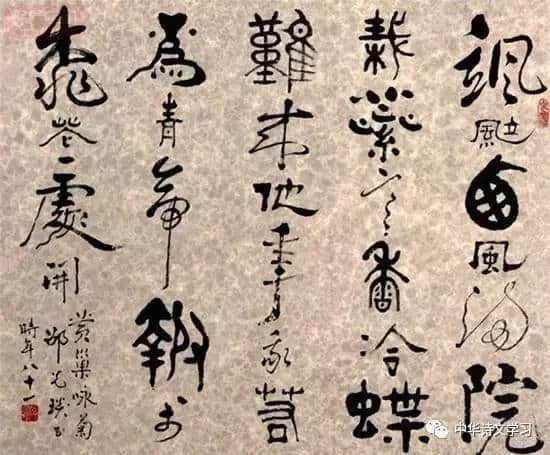 颯颯西風滿院
栽蘂寒香冷蝶
難來他年我若
爲青帝報与
桃花一處開
黄巢咏菊
時年八十一
中华诗文学习